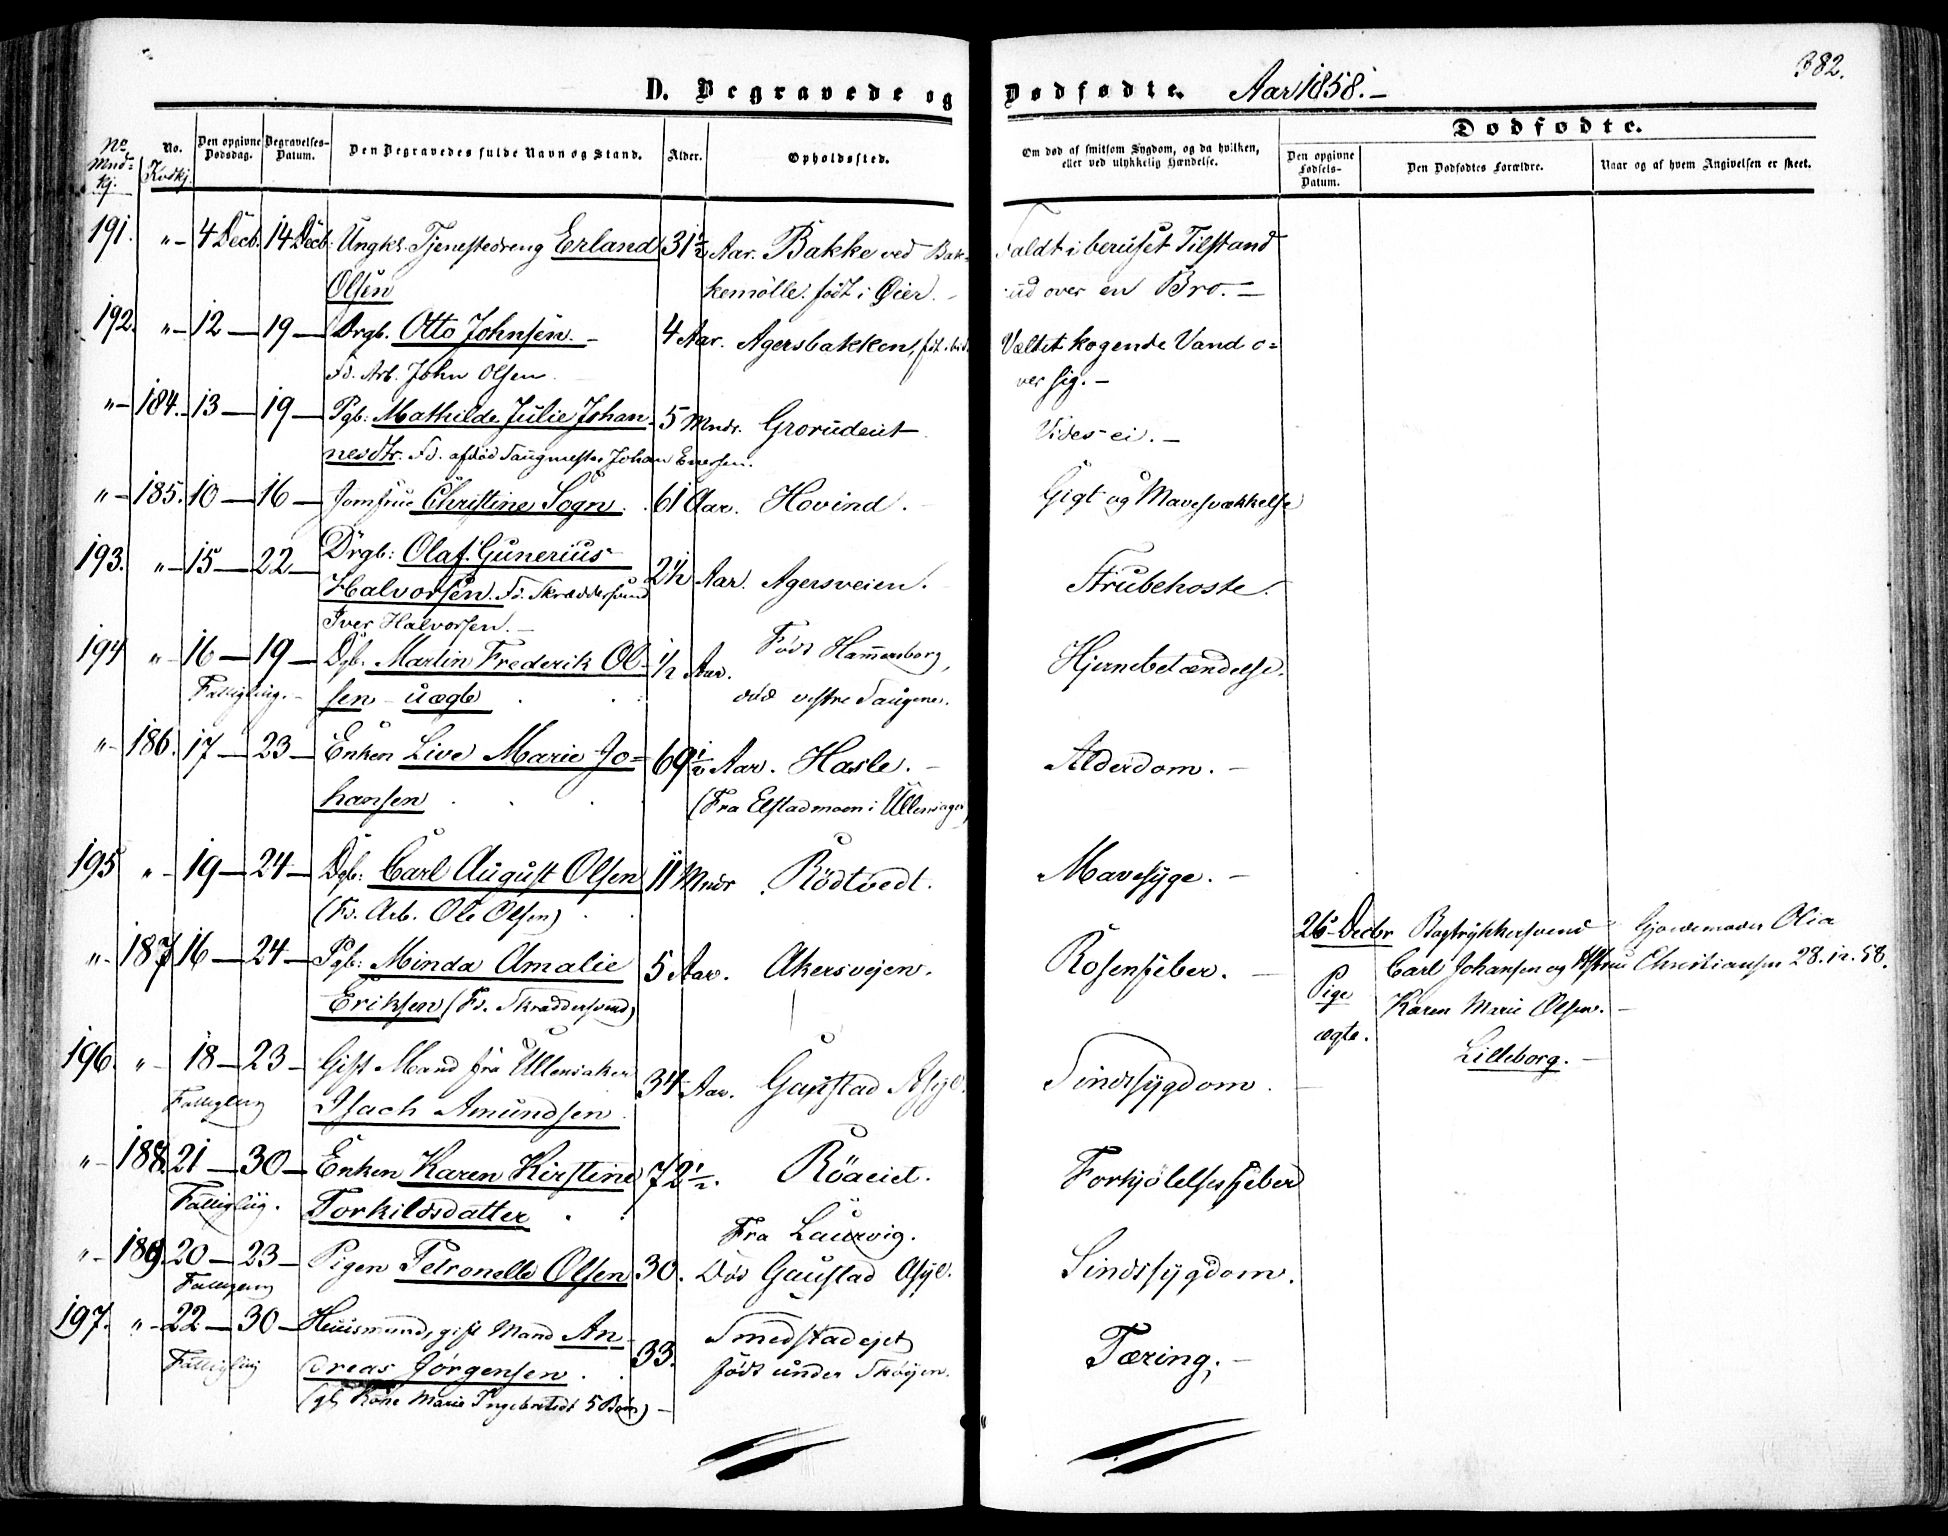 382.
D. Begravede og Dødfødte. Aar 1858.-
No Mnd-kj.
No. Kvdkj.
Den opgivne Dødsdag.
Begravelses-Datum.
Den Begravedes fulde Navn og Stand.
Alder.
Opholdssted.
Om død af smitsom Sygdom, og da hvilken, eller ved ulykkelig Hændelse.
Dødfødte.
Den opgivne Fødsels-Datum.
Den Dødfødtes Forældre.
Naar og af hvem Angivelsen er skeet.
191. „- 4 Decb. 14 Decb: Ungk. Tjenestedreng Erland 31½ Aar. Bakke ved Bak- Faldt i beruset Tilstand
Olsen kemølle. født i Øier. - ud over en Bro. -
192. „- 12 - 19 - Drgb. Otto Johnsen. - 4 Aar. Agersbakken, Væltet kogende Vand o=
Fd. Arb. John Olsen. ver sig. -
„- 184. 13 - 19 - Pgb: Mathilde Julie Johan- 5 Mndr. Grorudeiet Vides ei. -
nesdtr. Fd. afdød Johan Enersen.
„- 185. 10 - 16 - Jomfrue Christine Sogn. 61 Aar. Hovind. - Gigt og Mavesvækkelse
193. „- 15 - 22 - Drgb: Olaf Gunerius 2½ Aar. Agersveien. - Strubehoste.
Halvorsen. Fd. Skræddersvend
Iver Halvorsen. -
194 „- 16 - 19 - Dgb. Martin Frederik Ol- ½ Aar. Født Hammersborg, Hjernebetændelse.
Fattiglig. - sen - uægte død vestre Taugene.
„- 186. 17 - 23 - Enken Live Marie Jo= 69½ Aar. Hasle. - Alderdom. -
hansen (Fra Elstadmoen i Ullensager)
195 „- 19 - 24 - Dgb: Carl August Olsen 11 Mndr Rödtvedt. Mavesyge. -
(Fd. Arb. Ole Olsen)
„- 187 16 - 24 - Pgb: Minda Amalie 5 Aar. Akersvejen. Rosenfeber. -
Eriksen (Fd. Skræddersvend)
26 Decbr Bogtrykkersvend Gjordemoder Olia
Carl Johansen og Hstru Christiansen 28.12.58.
Pige Karen Marie Olsen. -
ægte. Lilleborg. -
196. „- 18 - 23 - Gift Mand fra Ullensaker 34 Aar. Gaustad Asyl. Sindssygdom. -
Fattiglig Isach Amundsen.
„- 188. 21 - 30 - Enken Karen Kirstine 72½. Röaeiet. Forkjölelsesfeber
Fattiglig. Torkildsdatter
Fra Laurvig.
„- 189. 20 - 23 - Pigen Petronelle Olsen 30. Död Gaustad Asyl. Sindssygdom.
Fattiglig
197. „- 22 - 30 - Huusmand, gift Mand An- 33. Smedstadejet Tæring. -
Fattiglig dreas Jørgensen. født under Skøyen.
Marie 5 Børn) -